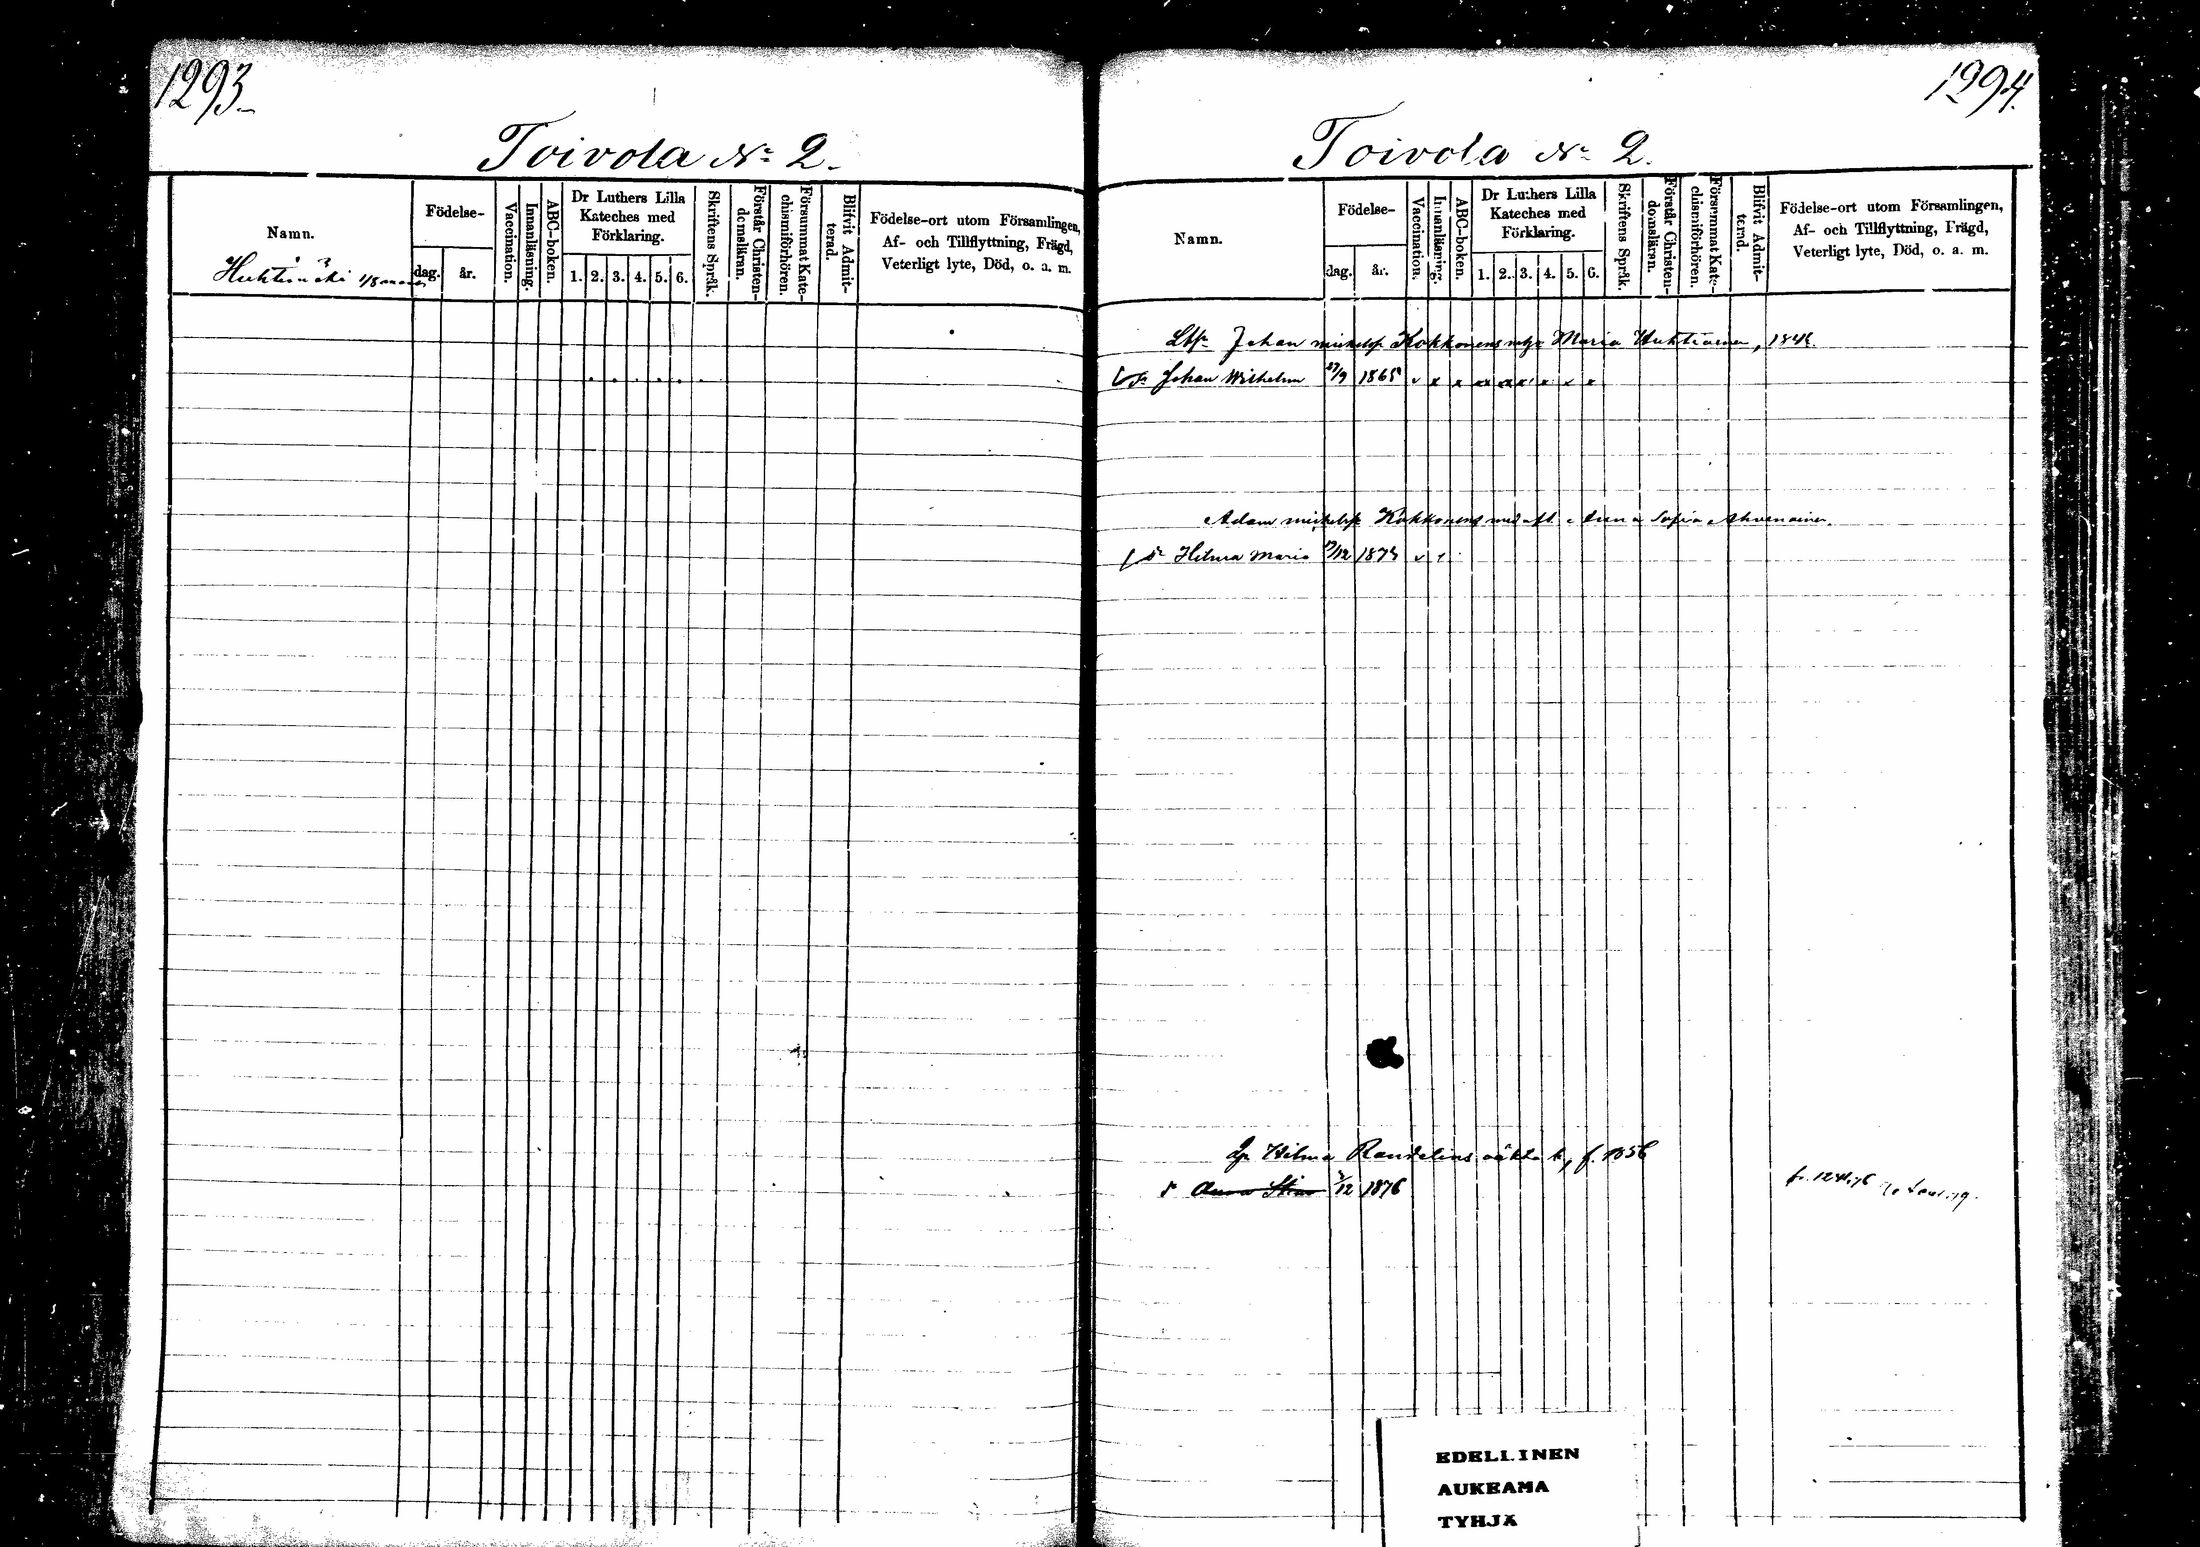 1293
Toivola No 2.
Namn.
Födelse-
dag.
år.
Vaccination.
Innanläsning.
ABC-boken.
Dr Luthers Lilla
Kateches med
Förklaring.
1. 2. 3. 4. 5. 6.
Skriftens Språk.
Förstår Christen-
domsläran.
Försummat Kate-
chismiförhören.
Blifvit Admit-
terad.
Födelse-ort utom Församlingen,
Af- och Tillflyttning, Frägd,
Veterligt lyte, Död, o. a. m.
1294.
Toivola No 2.
Namn.
Födelse-
dag.
år.
Vaccination.
Innanläsning.
ABC-boken.
Dr Luthers Lilla
Kateches med
Förklaring.
1. 2. 3. 4. 5. 6.
Skriftens Språk.
Förstår Christen-
domsläran.
Försummat Kate-
chismiförhören.
Blifvit Admit-
terad.
Födelse-ort utom Församlingen,
Af- och Tillflyttning, Frägd,
Veterligt lyte, Död, o. a. m.
Johan Kokkonens Maria
Johan Wilhelm /9 1865
Adam Kokkonens Anna Sofia Ahvenainen
Hilma Maria /12
Hilma Randelins f. 1856
Anna Stina /12 1876
EDELLINEN
AUKEAMA
TYHJÄ